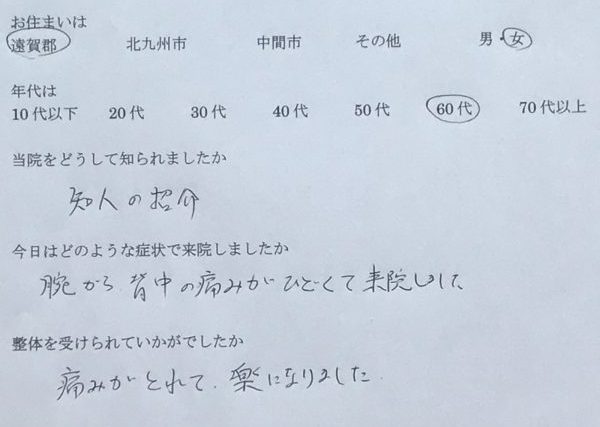 お住まいは
遠賀郡 北九州市 中間市 その他 男・女
年代は
10代以下 20代 30代 40代 50代 60代 70代以上
当院をどうして知られましたか
知人の招介
今日はどのような症状で来院しましたか
腕から背中の痛みがひどくて来院しました
整体を受けられていかがでしたか
痛みがとれて、楽になりました